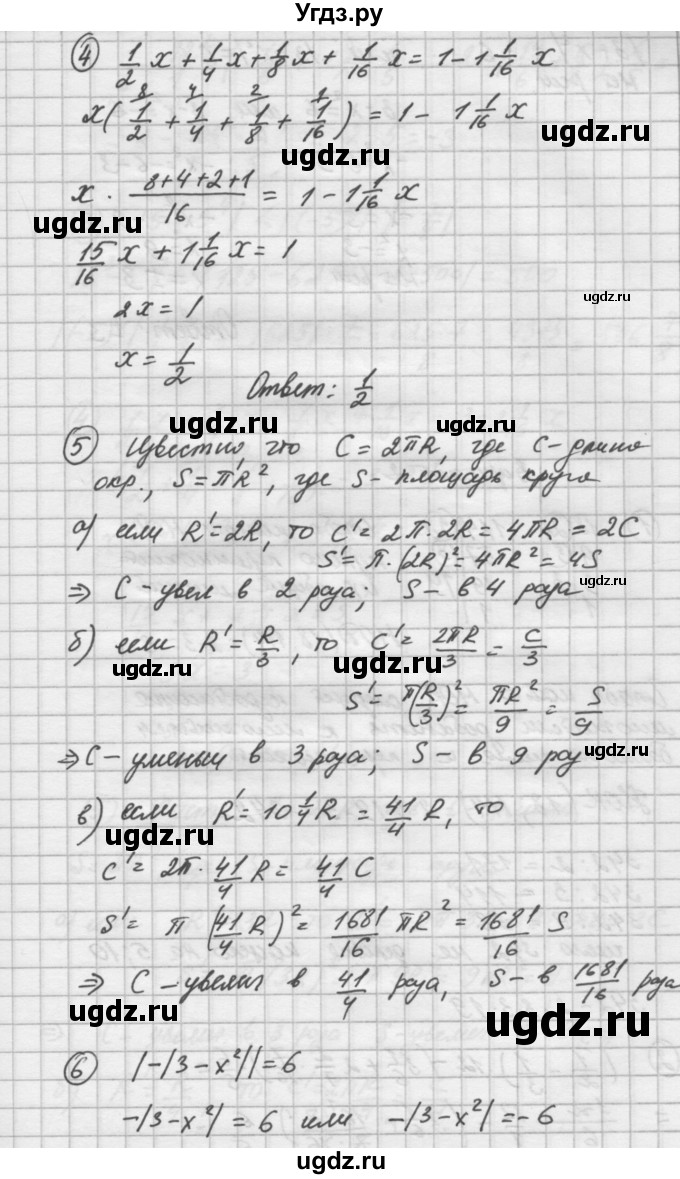 Угдз.ру
④ 1/2 x + 1/4 x + 1/8 x + 1/16 x = 1 - 1 1/16 x
8 4 2 1
x(1/2 + 1/4 + 1/8 + 1/16) = 1 - 1 1/16 x
ugdz.ru
x · (8+4+2+1)/16 = 1 - 1 1/16 x
ugdz.ru
15/16 x + 1 1/16 x = 1
ugdz.ru
2x = 1
x = 1/2
Ответ: 1/2
ugdz.ru ugdz.ru
⑤ Известно, что C = 2πR, где C - длина
окр., S = πR², где S - площадь круга
ugdz.ru ugdz.ru
а) если R' = 2R, то C' = 2π · 2R = 4πR = 2C
S' = π · (2R)² = 4πR² = 4S
ugdz.ru
⇒ C - увел в 2 раза; S - в 4 раза
б) если R' = R/3, то C' = 2πR/3 = C/3
ugdz.ru ugdz.ru
S' = π(R/3)² = πR²/9 = S/9
⇒ C - уменьш в 3 раза; S - в 9 раз
ugdz.ru
в) если R' = 10 1/4 R = 41/4 R, то
ugdz.ru
C' = 2π · 41/4 R = 41/4 C
S' = π (41/4 R)² = 1681/16 πR² = 1681/16 S
⇒ C - увелич в 41/4 раза, S - в 1681/16 раза
ugdz.ru ugdz.ru
⑥ |-|3 - x²|| = 6
-|3 - x²| = 6 или -|3 - x²| = -6
ugdz.ru